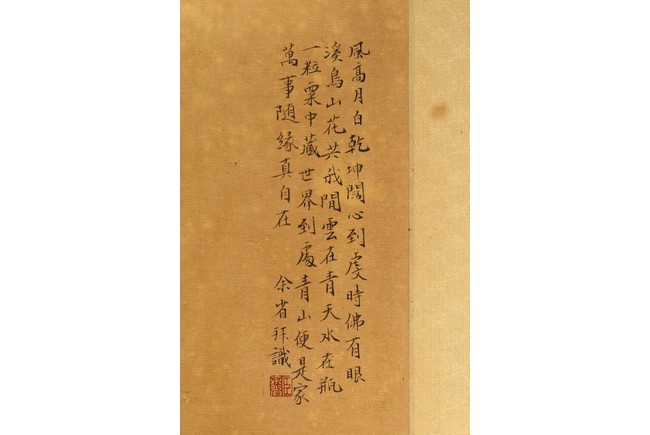 風高月白乾坤闊心到虔時佛有眼
溪鳥山花共我閒雲在青天水在瓶
一粒粟中藏世界到處青山便是家
萬事隨緣真自在
余省拜識